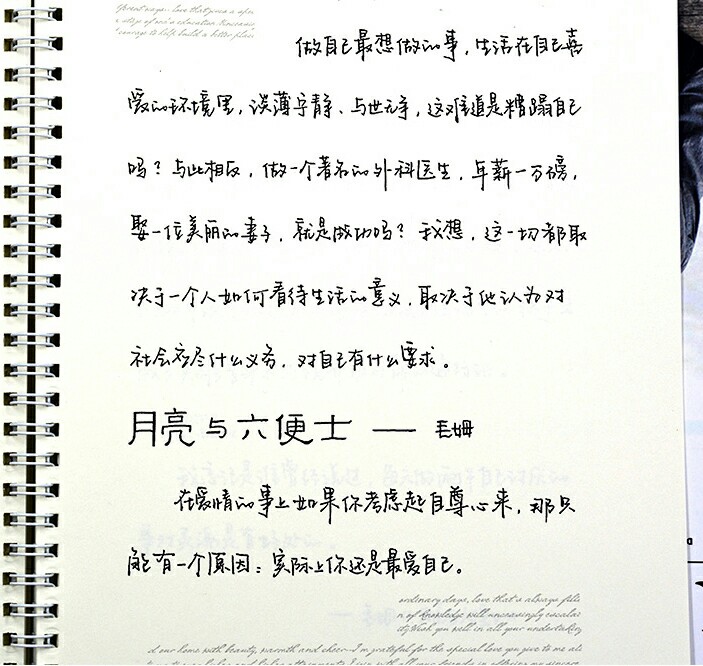 做自己最想做的事，生活在自己喜
爱的环境里，淡薄宁静、与世无争，这难道是糟蹋自己
吗？与此相反，做一个著名的外科医生，年薪一万磅，
娶一位美丽的妻子，就是成功吗？我想，这一切都取
决于一个人如何看待生活的意义，取决于他认为对
社会应尽什么义务，对自己有什么要求。
月亮与六便士 — 毛姆
在爱情的事上如果你考虑起自尊心来，那只
能有一个原因：实际上你还是最爱自己。
ordinary days, love that is always
n of knowledge will unceasingly
Wish you well in all your undertaking
d our home with beauty, warmth and cheer—I'm grateful for the special love you give to me